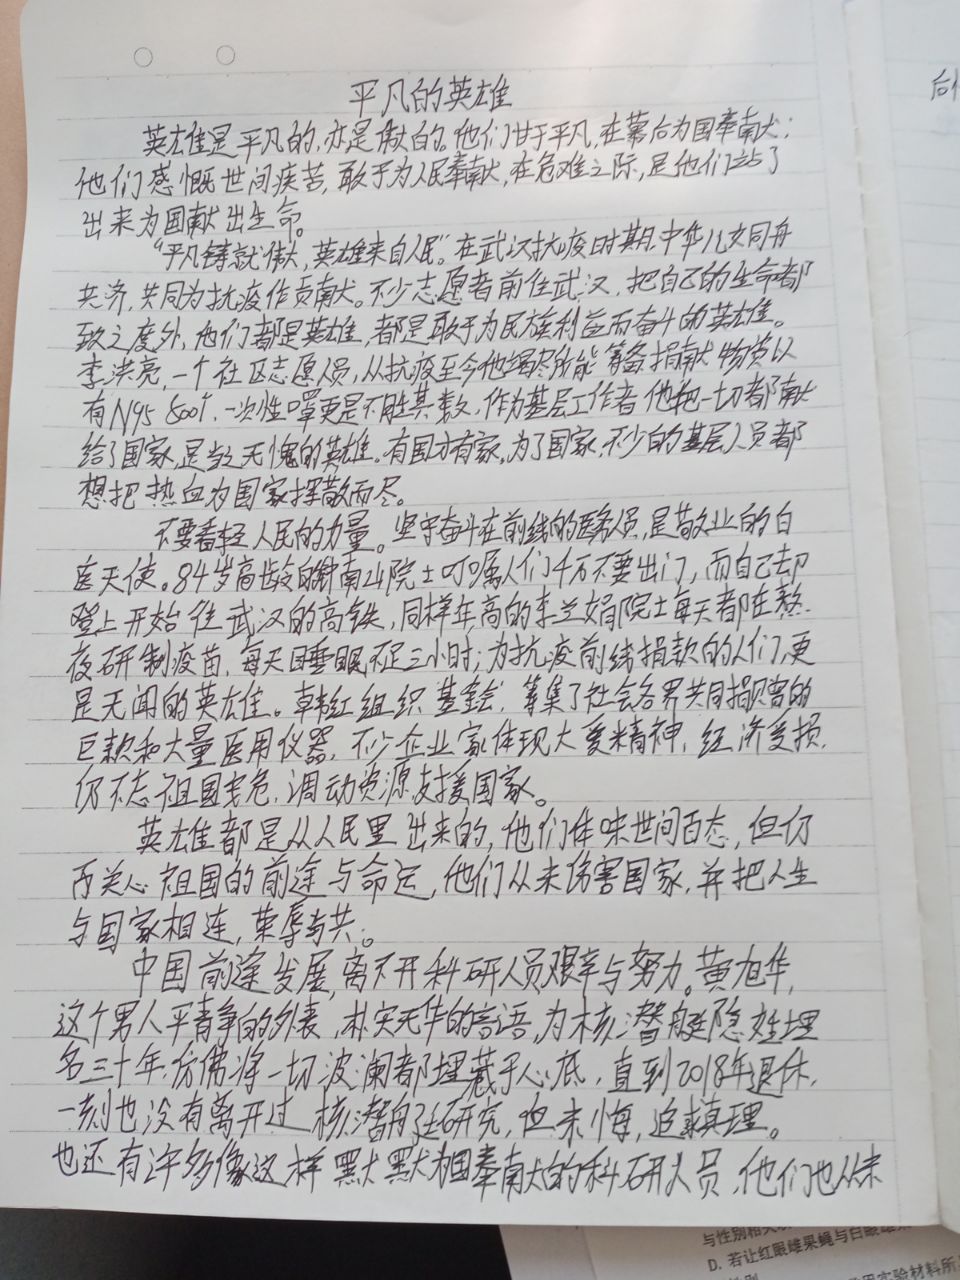 平凡的英雄
英雄是平凡的,亦是傲的。他们甘于平凡,在幕后为国奉献;
他们感慨世间疾苦,敢于为人民奉献,在危难之际,是他们站了
出来为国献出生命。
“平凡铸就伟大,英雄来自人民”。在武汉抗疫时期,中华儿女同舟
共济,共同为抗疫作贡献。不少志愿者前往武汉,把自己的生命都
致之度外,他们都是英雄,都是敢于为民族利益而奋斗的英雄。
李洪亮,一个社区志愿人员,从抗疫至今他竭尽所能筹备捐献物资以
有N95 800个,一次性口罩更是不胜其数,作为基层工作者他把一切都献
给了国家,是当之无愧的英雄。有国才有家,为了国家,不少的基层人员都
想把热血为国家挥散而尽。
不要看轻人民的力量。坚守奋斗在前线的医务人员,是敬业的白
医天使。84岁高龄的钟南山院士叮嘱人们千万不要出门,而自己却
登上开始往武汉的高铁,同样年高的李兰娟院士每天都在熬
夜研制疫苗,每天睡眠不足三小时;为抗疫前线捐款的人们,更
是无闻的英雄。韩红组织基金会,筹集了社会各界共同捐赠的
巨款和大量医用仪器,不少企业家体现大爱精神,经济受损,
仍不忘祖国安危,调动资源支援国家。
英雄都是从人民里出来的,他们体味世间百态,但仍
丙关心祖国的前途与命运,他们从未伤害国家,并把人生
与国家相连,荣辱与共。
中国前途发展,离不开科研人员艰辛与努力。黄旭华,
这个男人平静的外表,朴实无华的言语,为核潜艇隐姓埋
名三十年,仿佛将一切波澜都埋藏于心底,直到2018年退休,
一刻也没有离开过核潜的研究,但未悔,追求真理。
也还有许多像这样默默为国奉献的科研人员,他们也从未
后
与性别相关
D. 若让红眼雌果蝇与白眼雄
实验材料所